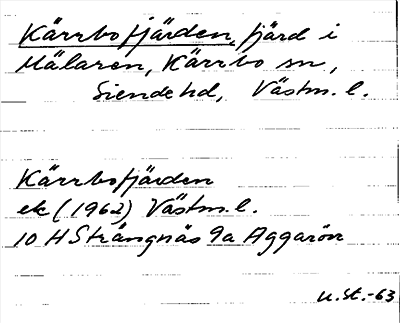 Kärrbofjärden, fjärd i
Mälaren, Kärrbo sn,
Siende hd, Västm. l.
Kärrbofjärden
ek (1962) Västm. l.
10 H Strängnäs 9a Aggarön
u.st.-63